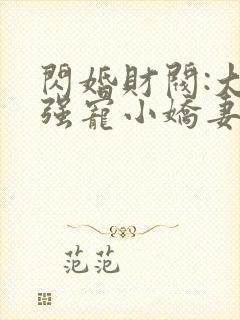 閃婚財閥:大
强寵小嬌妻
范范